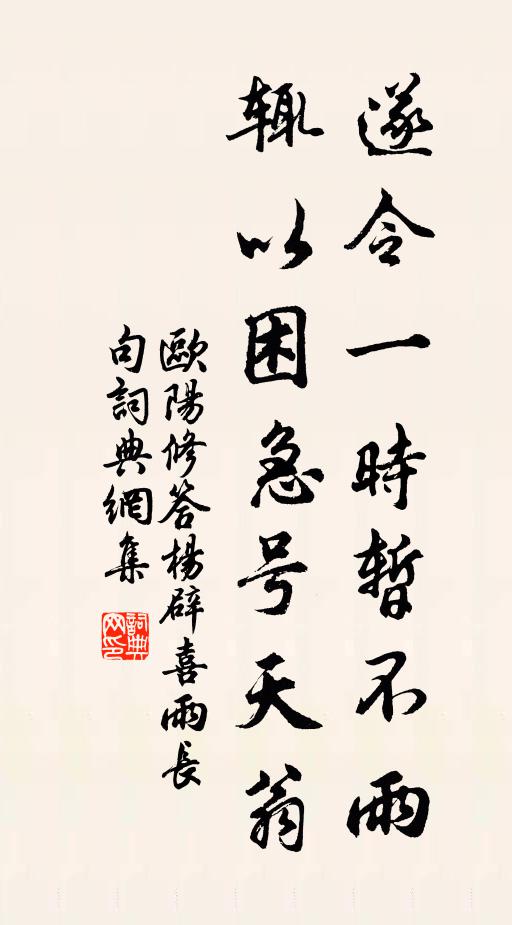 遂令一時暫不雨
輒以困急号天翁
歐陽修答楊辟喜雨長
句詞典網集
詞典
网印